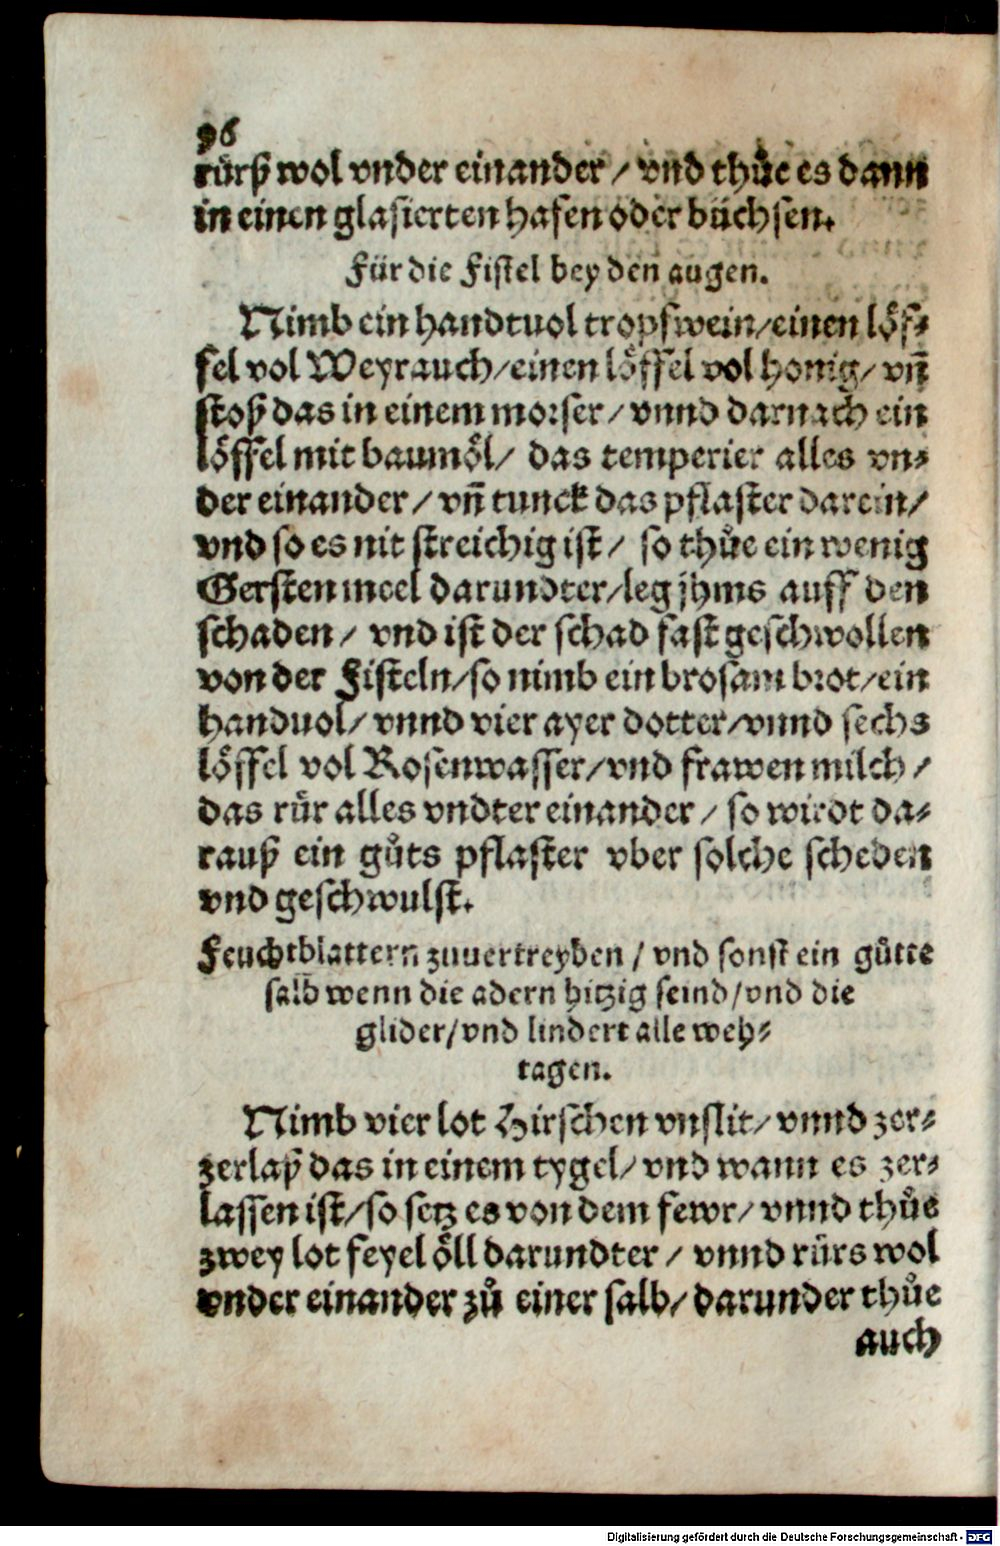 96
rürß wol vnder einander / vnd thůe es dann
in einen glasierten hafen oder büchsen.
Für die Fistel bey den augen.
Nimb ein handtuol tropfwein/einen löf⸗
fel vol Weyrauch/einen löffel vol honig/ vñ
stoß das in einem morser / vnnd darnach ein
löffel mit baumöl/ das temperier alles vn⸗
der einander / vñ tunck das pflaster darein/
vnd so es nit streichig ist / so thůe ein wenig
Gersten meel darundter/leg jhms auff den
schaden / vnd ist der schad fast geschwollen
von der Fisteln/so nimb ein brosam brot/ein
handuol/ vnnd vier ayer dotter/vnnd sechs
löffel vol Rosenwasser/vnd frawen milch /
das rür alles vndter einander / so wirdt da⸗
rauß ein gůts pflaster vber solche scheden
vnd geschwulst.
Feuchtblattern zuuertreyben / vnd sonst ein gůtte
salb wenn die adern hitzig seind/vnd die
glider/vnd lindert alle weh⸗
tagen.
Nimb vier lot Hirschen vnslit/ vnnd zer⸗
zerlaß das in einem tygel/ vnd wann es zer⸗
lassen ist/so setz es von dem fewr/ vnnd thůe
zwey lot feyel öll darundter / vnnd rürs wol
vnder einander zů einer salb/ darunder thůe
auch
Digitalisierung gefördert durch die Deutsche Forschungsgemeinschaft - DFG